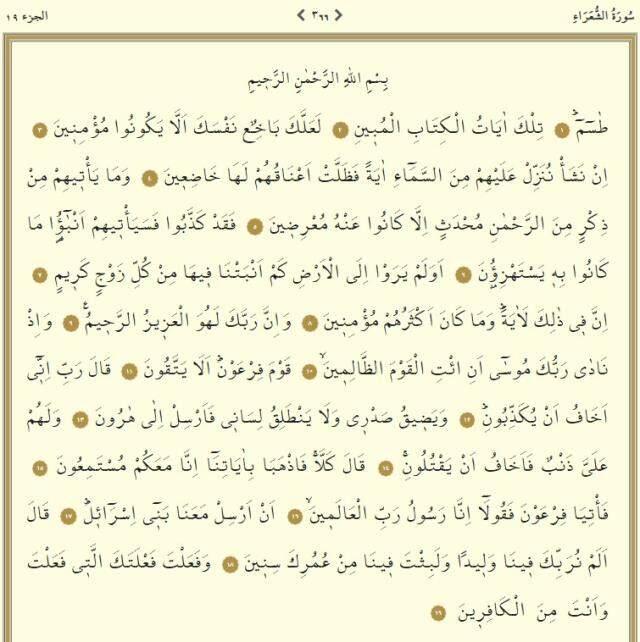 سُورَةُ الشُّعَرَاءِ ٣٦٦ الجزء ١٩
بِسْمِ اللهِ الرَّحْمٰنِ الرَّح۪يمِ
طٰسٓمٓۜ ﴿١﴾ تِلْكَ اٰيَاتُ الْكِتَابِ الْمُب۪ينِ ﴿٢﴾ لَعَلَّكَ بَاخِعٌ نَفْسَكَ اَلَّا يَكُونُوا مُؤْمِن۪ينَ ﴿٣﴾
اِنْ نَشَأْ نُنَزِّلْ عَلَيْهِمْ مِنَ السَّمَٓاءِ اٰيَةً فَظَلَّتْ اَعْنَاقُهُمْ لَهَا خَاضِع۪ينَ ﴿٤﴾ وَمَا يَأْت۪يهِمْ مِنْ
ذِكْرٍ مِنَ الرَّحْمٰنِ مُحْدَثٍ اِلَّا كَانُوا عَنْهُ مُعْرِض۪ينَ ﴿٥﴾ فَقَدْ كَذَّبُوا فَسَيَأْت۪يهِمْ اَنْبٰٓؤُ۬ا مَا
كَانُوا بِه۪ يَسْتَهْزِؤُ۫نَ ﴿٦﴾ اَوَلَمْ يَرَوْا اِلَى الْاَرْضِ كَمْ اَنْبَتْنَا ف۪يهَا مِنْ كُلِّ زَوْجٍ كَر۪يمٍ ﴿٧﴾
اِنَّ ف۪ي ذٰلِكَ لَاٰيَةًۜ وَمَا كَانَ اَكْثَرُهُمْ مُؤْمِن۪ينَ ﴿٨﴾ وَاِنَّ رَبَّكَ لَهُوَ الْعَز۪يزُ الرَّح۪يمُ۟ ﴿٩﴾ وَاِذْ
نَادٰى رَبُّكَ مُوسٰٓى اَنِ ائْتِ الْقَوْمَ الظَّالِم۪ينَۙ ﴿١٠﴾ قَوْمَ فِرْعَوْنَۜ اَلَا يَتَّقُونَ ﴿١١﴾ قَالَ رَبِّ اِنّ۪ٓي
اَخَافُ اَنْ يُكَذِّبُونِۜ ﴿١٢﴾ وَيَض۪يقُ صَدْر۪ي وَلَا يَنْطَلِقُ لِسَان۪ي فَاَرْسِلْ اِلٰى هٰرُونَ ﴿١٣﴾ وَلَهُمْ
عَلَيَّ ذَنْبٌ فَاَخَافُ اَنْ يَقْتُلُونِۚ ﴿١٤﴾ قَالَ كَلَّاۚ فَاذْهَبَا بِاٰيَاتِنَٓا اِنَّا مَعَكُمْ مُسْتَمِعُونَ ﴿١٥﴾
فَأْتِيَا فِرْعَوْنَ فَقُولَٓا اِنَّا رَسُولُ رَبِّ الْعَالَم۪ينَۙ ﴿١٦﴾ اَنْ اَرْسِلْ مَعَنَا بَن۪ٓي اِسْرَٓائ۪لَۜ ﴿١٧﴾ قَالَ
اَلَمْ نُرَبِّكَ ف۪ينَا وَل۪يدًا وَلَبِثْتَ ف۪ينَا مِنْ عُمُرِكَ سِن۪ينَ ﴿١٨﴾ وَفَعَلْتَ فَعْلَتَكَ الَّت۪ي فَعَلْتَ
وَاَنْتَ مِنَ الْكَافِر۪ينَ ﴿١٩﴾